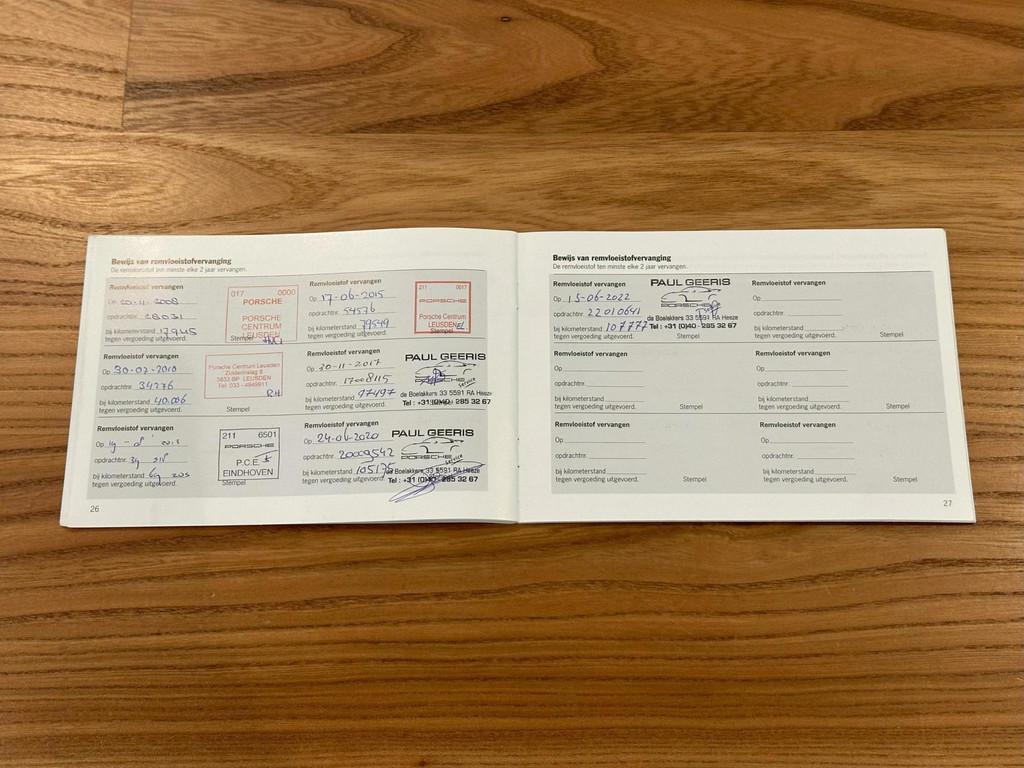 Bewijs van remvloeistofvervanging
De remvloeistof ten minste elke 2 jaar vervangen.
Remvloeistof vervangen
Op 20-11-2008
opdrachtnr. 28031
bij kilometerstand 17945
tegen vergoeding uitgevoerd.
017 0000
PORSCHE
PORSCHE
CENTRUM
LEUSDEN
Stempel
Remvloeistof vervangen
Op 17-06-2015
opdrachtnr. 54576
bij kilometerstand 79549
tegen vergoeding uitgevoerd.
211 0017
PORSCHE
Porsche Centrum
LEUSDEN
Stempel
Remvloeistof vervangen
Op 30-07-2010
opdrachtnr. 34276
bij kilometerstand 40.006
tegen vergoeding uitgevoerd.
Porsche Centrum Leusden
Zuiderinslag 8
3833 BP LEUSDEN
Tel. 033 - 4949911
RH
Stempel
Remvloeistof vervangen
Op 20-11-2017
opdrachtnr. 17008115
bij kilometerstand 97497
tegen vergoeding uitgevoerd.
PAUL GEERIS
PORSCHE
Service
de Boelakkers 33 5591 RA Heeze
Tel : +31 (0)40 - 285 32 67
Remvloeistof vervangen
Op
opdrachtnr.
bij kilometerstand
tegen vergoeding uitgevoerd.
211 6501
PORSCHE
P.C.E
EINDHOVEN
Stempel
Remvloeistof vervangen
Op 24-06-2020
opdrachtnr. 20009542
bij kilometerstand 105175
tegen vergoeding uitgevoerd.
PAUL GEERIS
PORSCHE
Service
de Boelakkers 33 5591 RA Heeze
Tel : +31 (0)40 - 285 32 67
26
Bewijs van remvloeistofvervanging
De remvloeistof ten minste elke 2 jaar vervangen.
Remvloeistof vervangen
Op 15-06-2022
opdrachtnr. 22010641
bij kilometerstand 107777
tegen vergoeding uitgevoerd.
PAUL GEERIS
PORSCHE
de Boelakkers 33 5591 RA Heeze
Tel : +31 (0)40 - 285 32 67
Stempel
Remvloeistof vervangen
Op
opdrachtnr.
bij kilometerstand
tegen vergoeding uitgevoerd.
Stempel
Remvloeistof vervangen
Op
opdrachtnr.
bij kilometerstand
tegen vergoeding uitgevoerd.
Stempel
Remvloeistof vervangen
Op
opdrachtnr.
bij kilometerstand
tegen vergoeding uitgevoerd.
Stempel
Remvloeistof vervangen
Op
opdrachtnr.
bij kilometerstand
tegen vergoeding uitgevoerd.
Stempel
Remvloeistof vervangen
Op
opdrachtnr.
bij kilometerstand
tegen vergoeding uitgevoerd.
Stempel
27